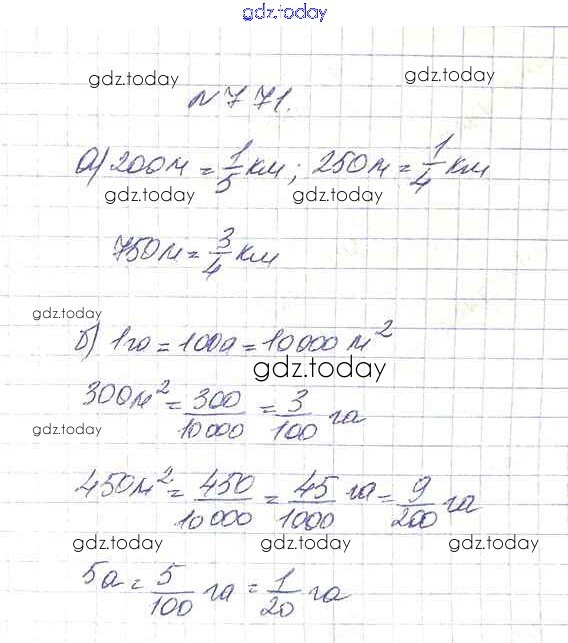 gdz.today
gdz.today gdz.today
№771.
а) 200м = 1/5 км; 250м = 1/4 км
gdz.today gdz.today
750м = 3/4 км
gdz.today
б) 1га = 100а = 10000 м²
gdz.today
300м² = 300/10000 = 3/100 га
gdz.today
450м² = 450/10000 = 45/1000 га = 9/200 га
gdz.today gdz.today gdz.today
5а = 5/100 га = 1/20 га